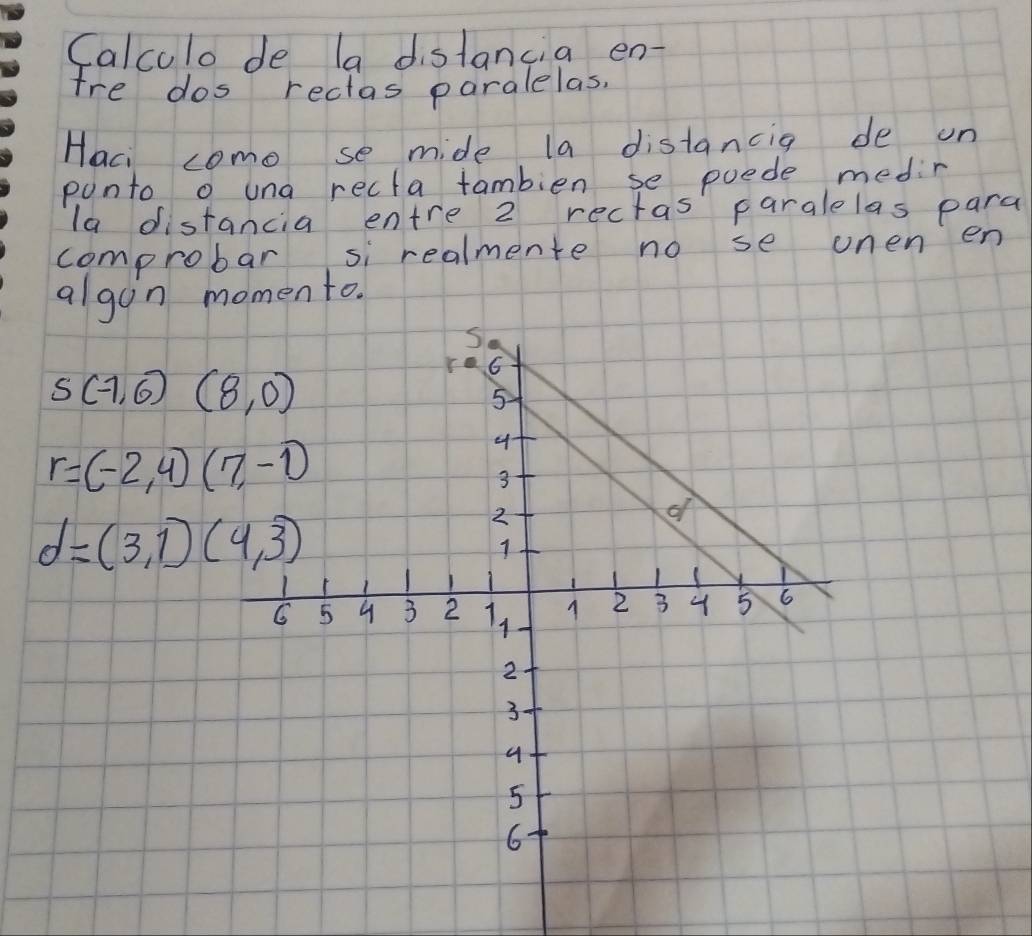 Calculo de la distancia en-
tre dos rectas paralelas.
Haci como se mide la distancia de un
punto o una recta tambien se puede medir
la distancia entre 2 rectas paralelas para
comprobar si realmente no se unen en
algun momento.
S
r 6
s(-1,6) (8,0)
5
4
r=(-2,4)(7,-1)
3
2 d
d=(3,1)(4,3)
1
6 5 4 3 2 1 1 2 3 4 5 6
1
2
3
4
5
6